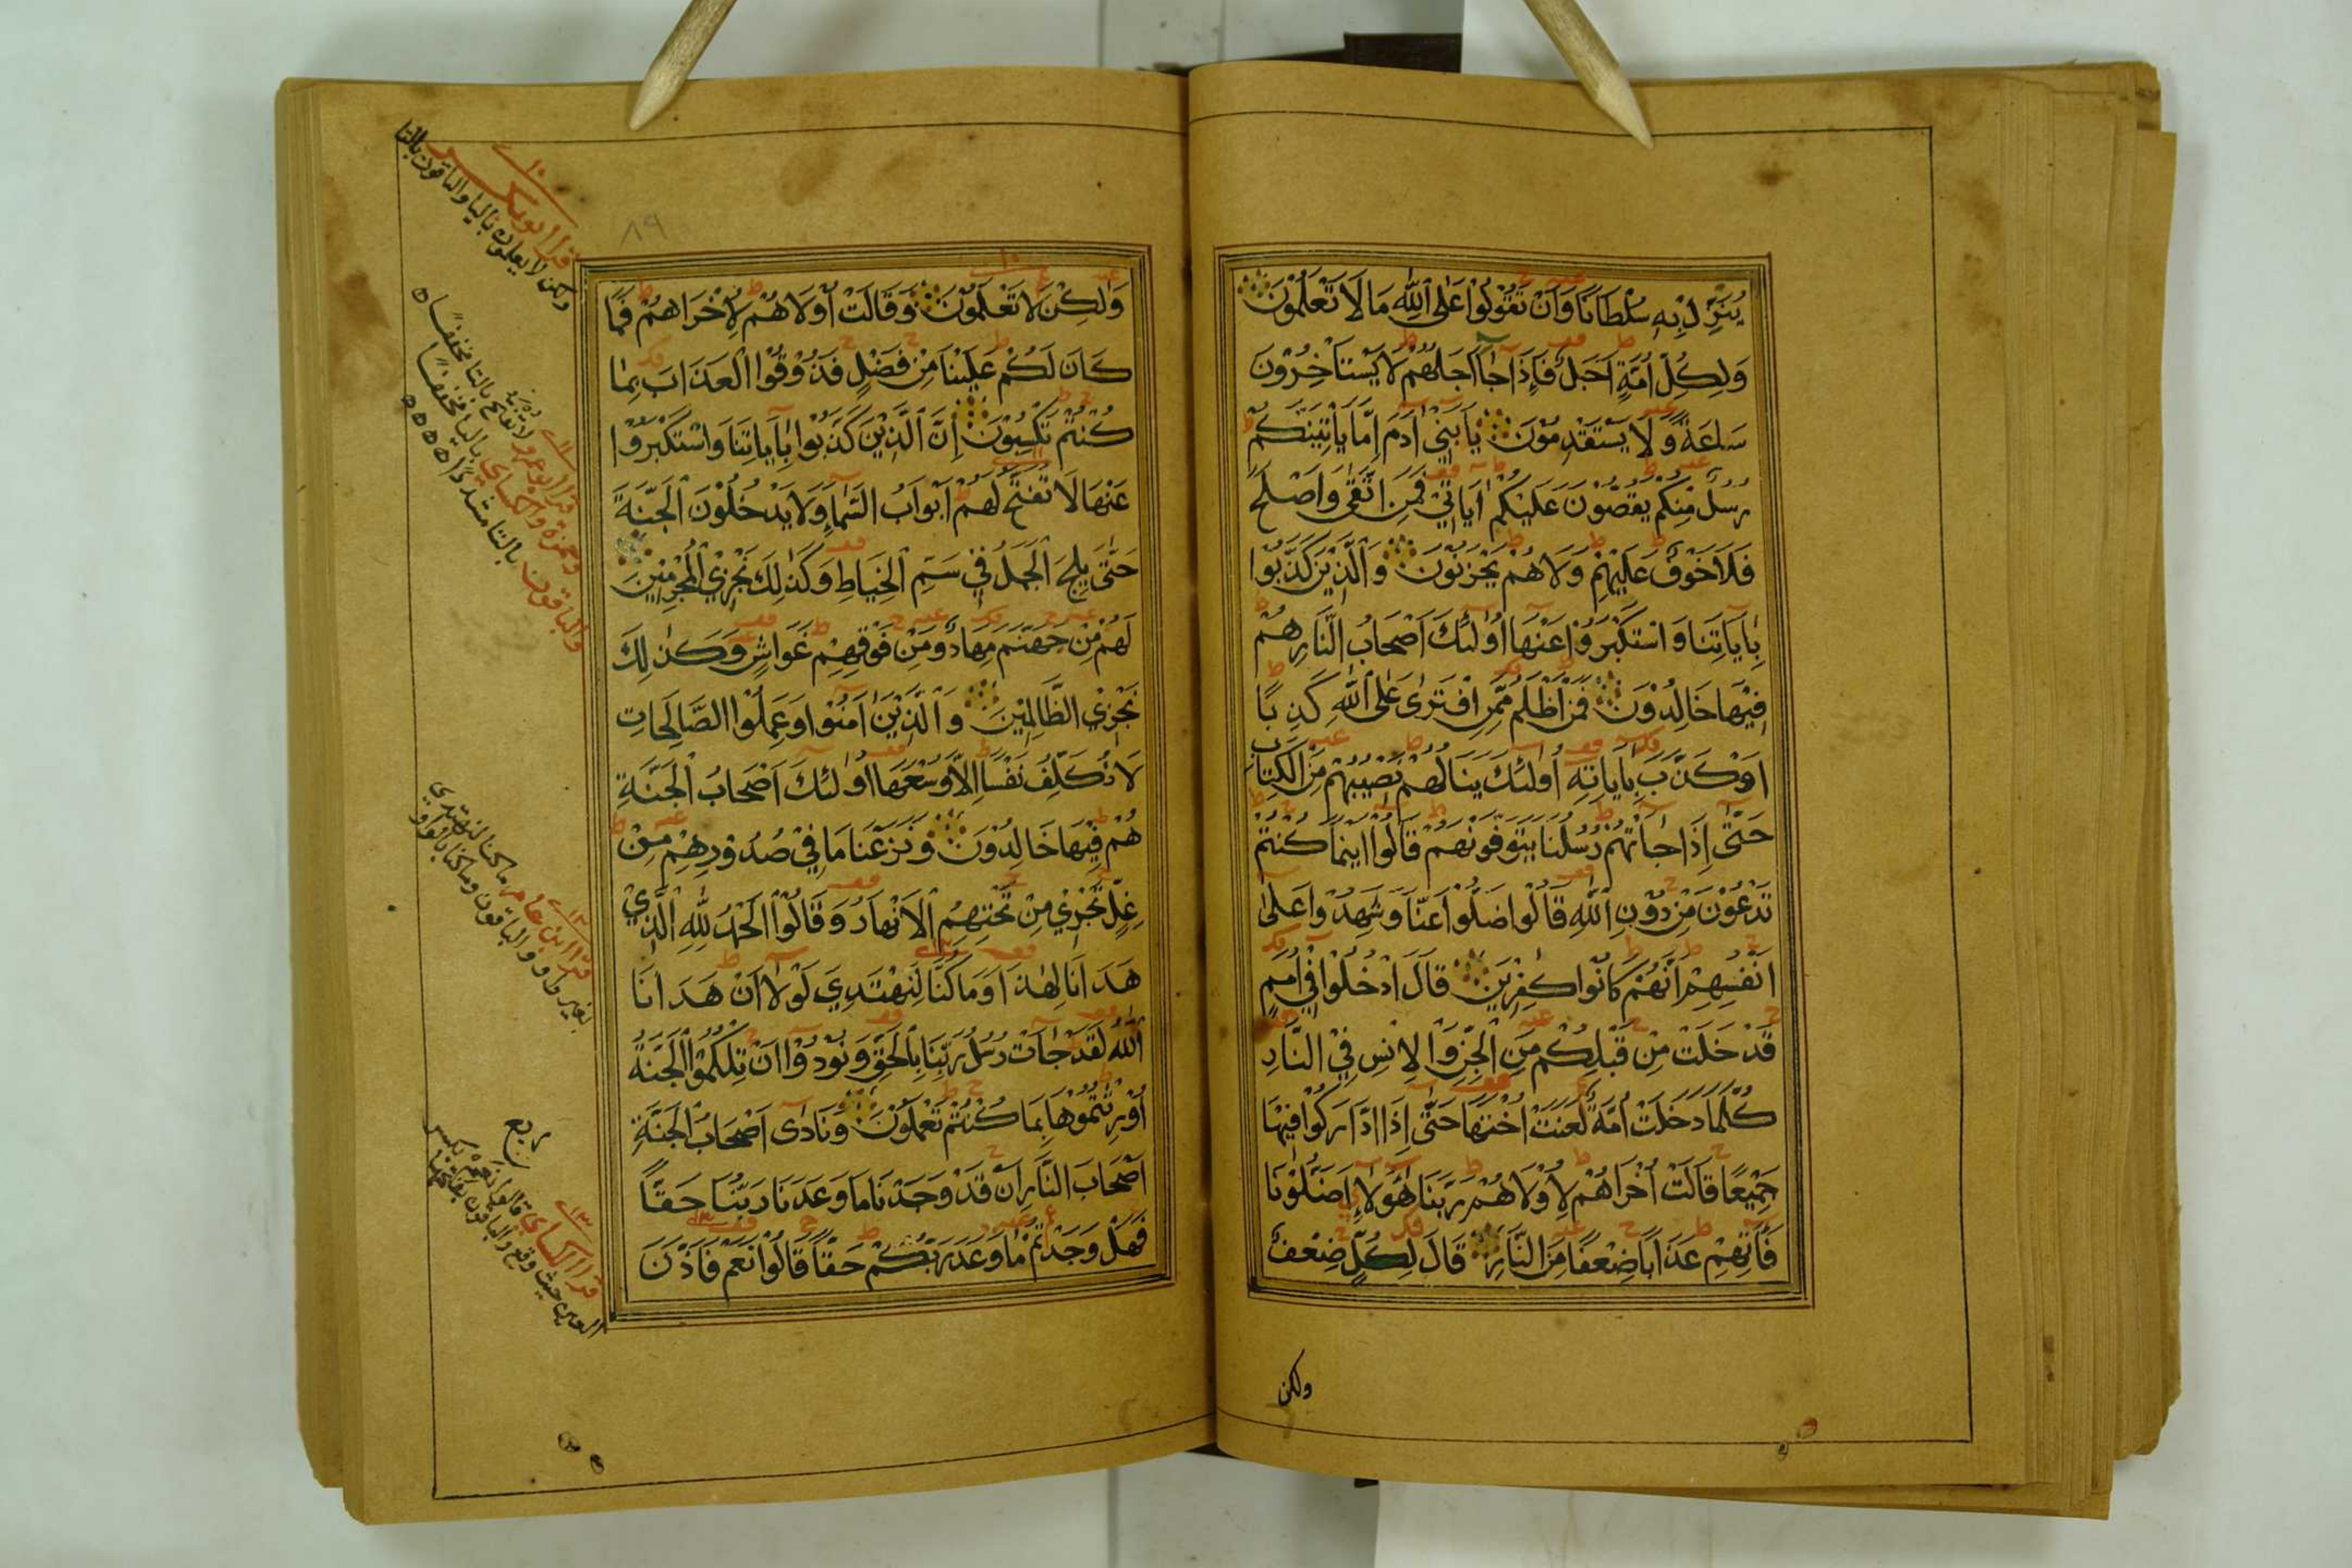 يُنَزِّلْ بِهِ سُلْطَانًا وَأَنْ تَقُوْلُوْا عَلَى اللهِ مَا لَا تَعْلَمُوْنَ
وَلِكُلِّ اُمَّةٍ اَجَلٌ فَإِذَا جَآءَ اَجَلُهُمْ لَا يَسْتَأْخِرُوْنَ
سَاعَةً وَّلَا يَسْتَقْدِمُوْنَ يَا بَنِيْ اٰدَمَ إِمَّا يَأْتِيَنَّكُمْ
رُسُلٌ مِّنْكُمْ يَقُصُّوْنَ عَلَيْكُمْ اٰيَاتِيْ فَمَنِ اتَّقٰى وَاَصْلَحَ
فَلَا خَوْفٌ عَلَيْهِمْ وَلَا هُمْ يَحْزَنُوْنَ وَالَّذِيْنَ كَذَّبُوْا
بِاٰيَاتِنَا وَاسْتَكْبَرُوْا عَنْهَا اُولٰئِكَ اَصْحَابُ النَّارِ هُمْ
فِيْهَا خَالِدُوْنَ فَمَنْ اَظْلَمُ مِمَّنِ افْتَرٰى عَلَى اللهِ كَذِبًا
اَوْ كَذَّبَ بِاٰيَاتِهِ اُولٰئِكَ يَنَالُهُمْ نَصِيْبُهُمْ مِنَ الْكِتَابِ
حَتّٰى إِذَا جَآءَتْهُمْ رُسُلُنَا يَتَوَفَّوْنَهُمْ قَالُوْا اَيْنَمَا كُنْتُمْ
تَدْعُوْنَ مِنْ دُوْنِ اللهِ قَالُوْا ضَلُّوْا عَنَّا وَشَهِدُوْا عَلٰى
اَنْفُسِهِمْ اَنَّهُمْ كَانُوْا كٰفِرِيْنَ قَالَ ادْخُلُوْا فِيْ اُمَمٍ
قَدْ خَلَتْ مِنْ قَبْلِكُمْ مِنَ الْجِنِّ وَالْاِنْسِ فِي النَّارِ
كُلَّمَا دَخَلَتْ اُمَّةٌ لَعَنَتْ اُخْتَهَا حَتّٰى إِذَا ادَّارَكُوْا فِيْهَا
جَمِيْعًا قَالَتْ اُخْرَاهُمْ لِاُوْلَاهُمْ رَبَّنَا هٰؤُلَاءِ اَضَلُّوْنَا
فَاٰتِهِمْ عَذَابًا ضِعْفًا مِنَ النَّارِ قَالَ لِكُلٍّ ضِعْفٌ
ولكن
٨٩
وَلٰكِنْ لَا تَعْلَمُوْنَ وَقَالَتْ اُوْلَاهُمْ لِاُخْرَاهُمْ فَمَا
كَانَ لَكُمْ عَلَيْنَا مِنْ فَضْلٍ فَذُوْقُوا الْعَذَابَ بِمَا
كُنْتُمْ تَكْسِبُوْنَ إِنَّ الَّذِيْنَ كَذَّبُوْا بِاٰيَاتِنَا وَاسْتَكْبَرُوْا
عَنْهَا لَا تُفَتَّحُ لَهُمْ اَبْوَابُ السَّمَآءِ وَلَا يَدْخُلُوْنَ الْجَنَّةَ
حَتّٰى يَلِجَ الْجَمَلُ فِيْ سَمِّ الْخِيَاطِ وَكَذٰلِكَ نَجْزِي الْمُجْرِمِيْنَ
لَهُمْ مِنْ جَهَنَّمَ مِهَادٌ وَمِنْ فَوْقِهِمْ غَوَاشٍ وَكَذٰلِكَ
نَجْزِي الظَّالِمِيْنَ وَالَّذِيْنَ اٰمَنُوْا وَعَمِلُوا الصَّالِحَاتِ
لَا نُكَلِّفُ نَفْسًا اِلَّا وُسْعَهَا اُولٰئِكَ اَصْحَابُ الْجَنَّةِ
هُمْ فِيْهَا خَالِدُوْنَ وَنَزَعْنَا مَا فِيْ صُدُوْرِهِمْ مِنْ
غِلٍّ تَجْرِيْ مِنْ تَحْتِهِمُ الْاَنْهَارُ وَقَالُوْا الْحَمْدُ لِلّٰهِ الَّذِيْ
هَدَانَا لِهٰذَا وَمَا كُنَّا لِنَهْتَدِيَ لَوْلَا اَنْ هَدَانَا
اللهُ لَقَدْ جَآءَتْ رُسُلُ رَبِّنَا بِالْحَقِّ وَنُوْدُوْا اَنْ تِلْكُمُ الْجَنَّةُ
اُوْرِثْتُمُوْهَا بِمَا كُنْتُمْ تَعْمَلُوْنَ وَنَادٰى اَصْحَابُ الْجَنَّةِ
اَصْحَابَ النَّارِ اَنْ قَدْ وَجَدْنَا مَا وَعَدَنَا رَبُّنَا حَقًّا
فَهَلْ وَجَدْتُمْ مَا وَعَدَ رَبُّكُمْ حَقًّا قَالُوْا نَعَمْ فَاَذَّنَ
قرا ابو بكر
ولكن لا يعلمون باليا والباقون بالتا
قرا ابو عمرو لا تفتح بالتا مخففا
وحمزة والكسائي باليا مخففا
والباقون بالتا مشددا
قرا ابن عامر ما كنا لنهتدي
بغير واو والباقون وما كنا بالواو
ربع
قرا الكسائي قالوا نعم بكسر
العين حيث وقع والباقون بفتحها